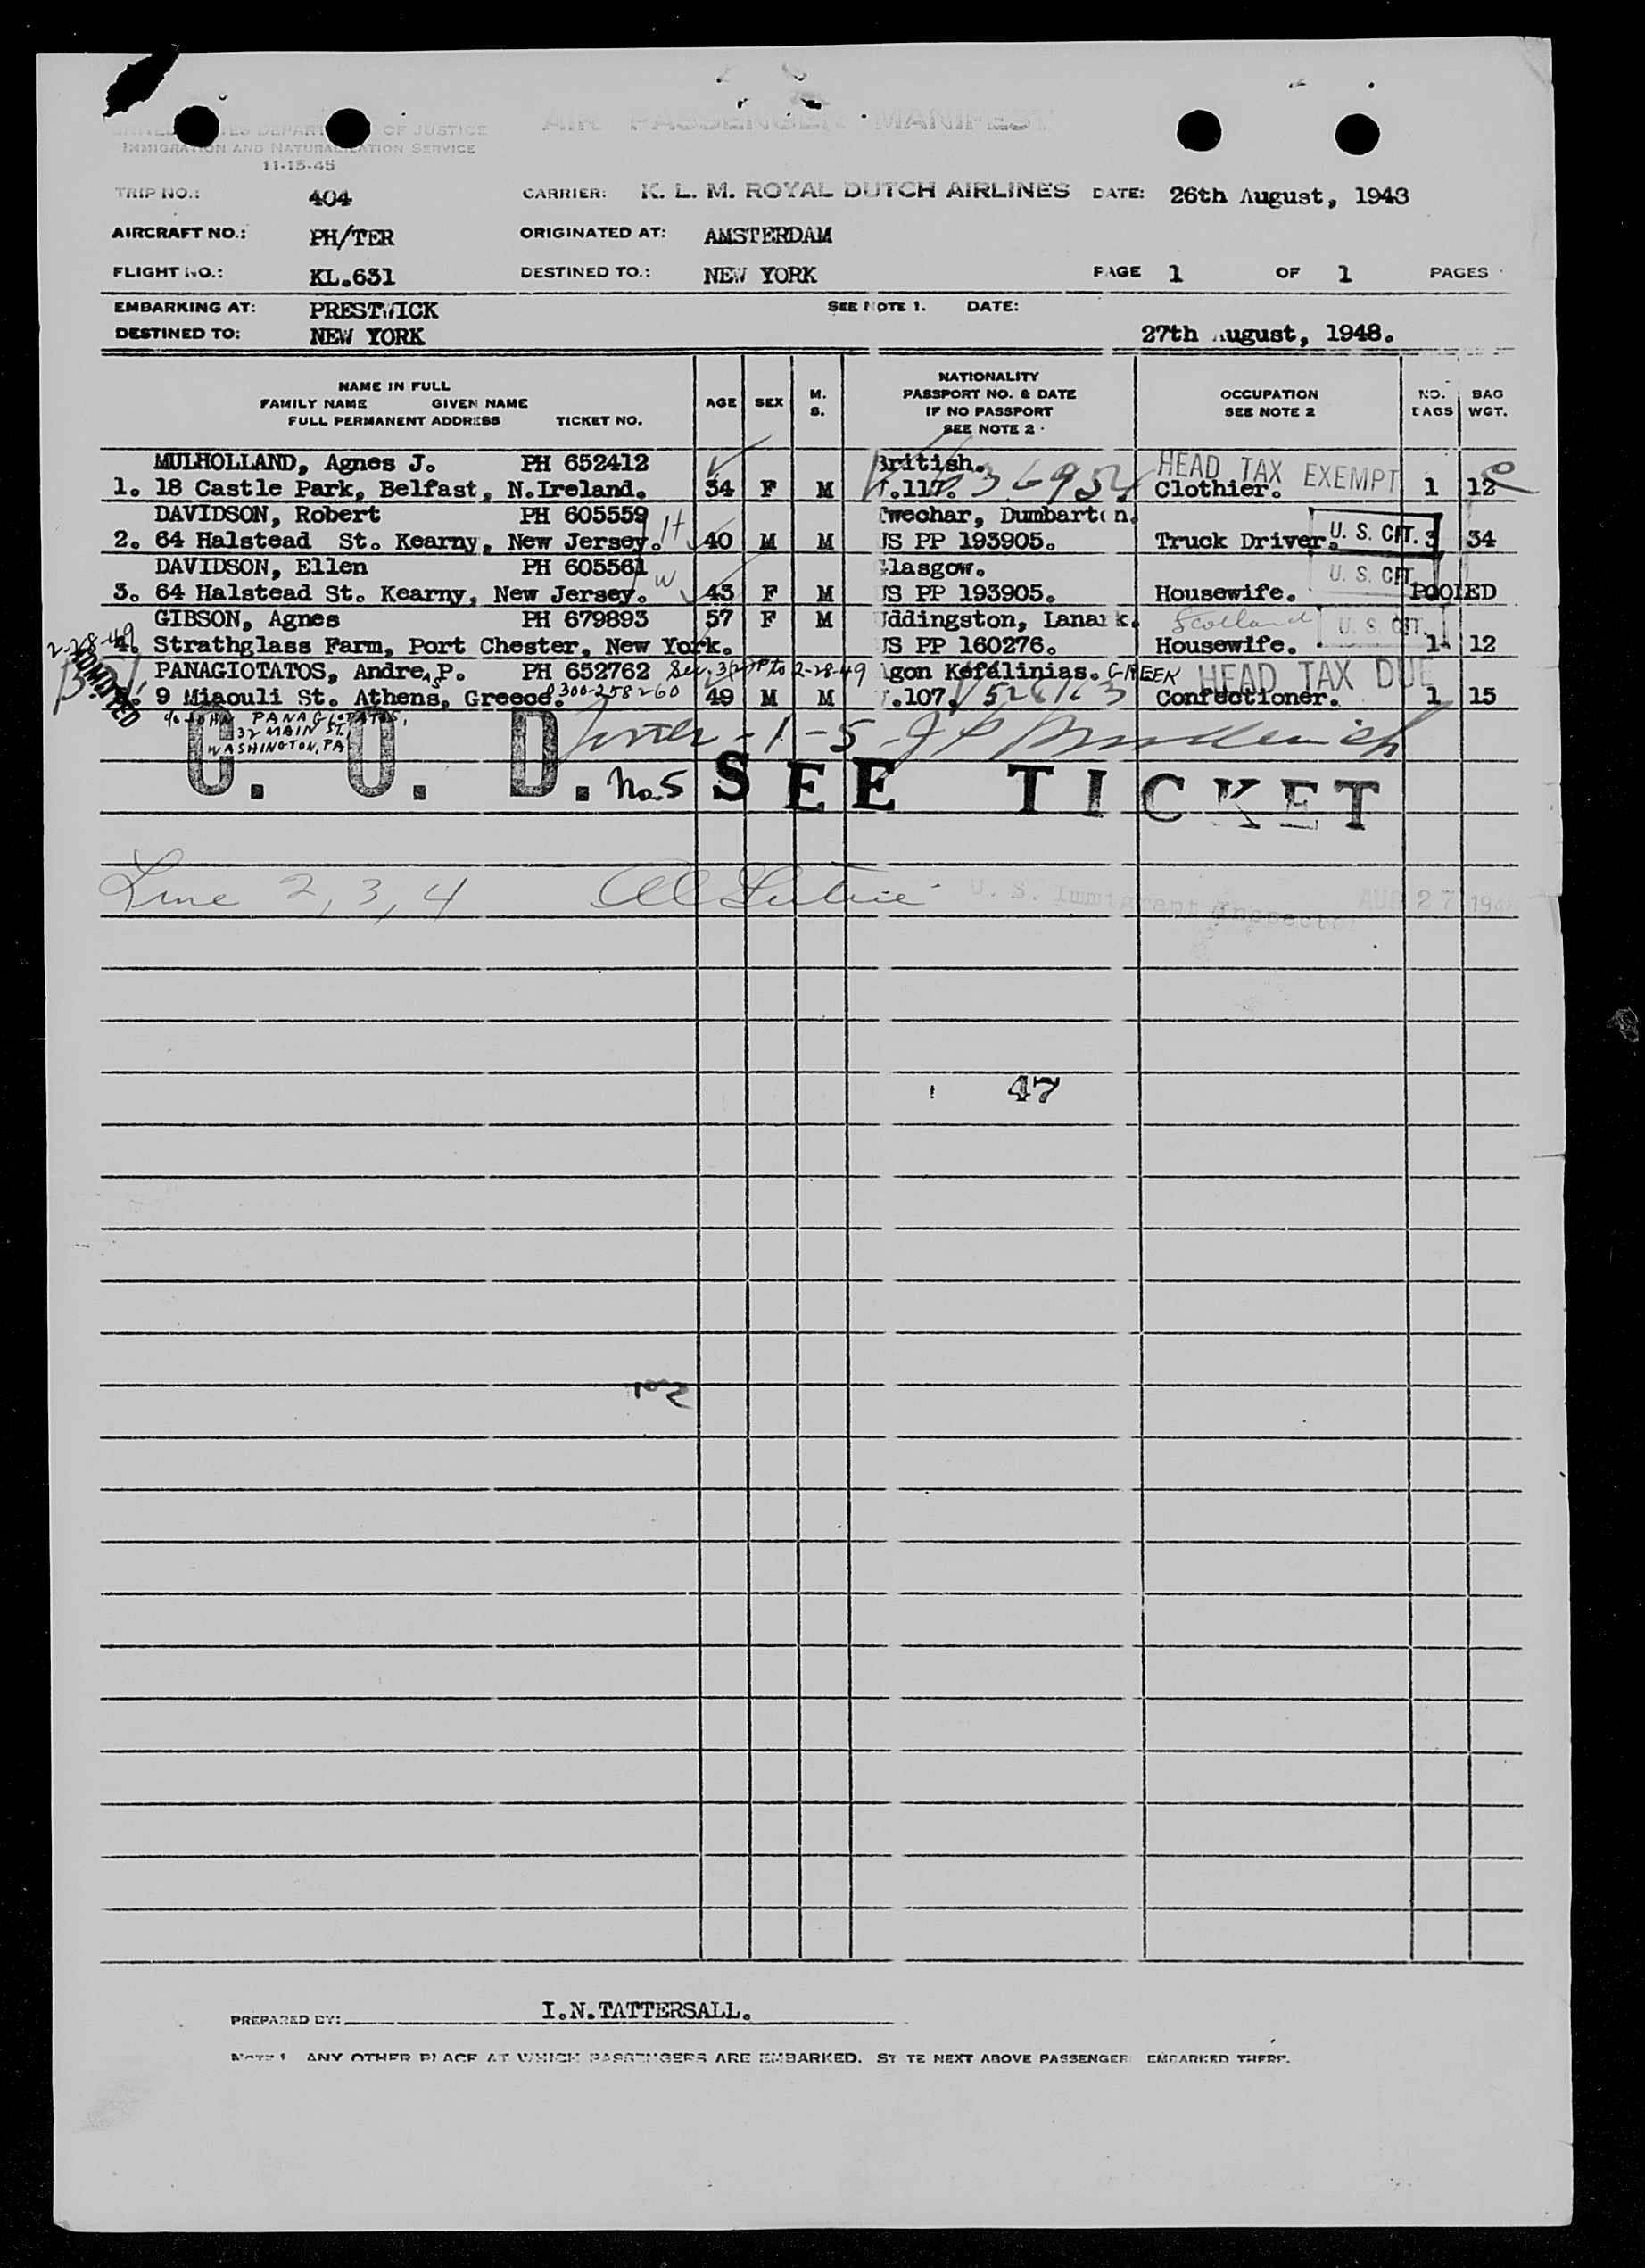 UNITED STATES DEPARTMENT OF JUSTICE
IMMIGRATION AND NATURALIZATION SERVICE
11-15-45
AIR PASSENGER MANIFEST
TRIP NO.: 404 CARRIER: K. L. M. ROYAL DUTCH AIRLINES DATE: 26th August, 1943
AIRCRAFT NO.: PH/TER ORIGINATED AT: AMSTERDAM
FLIGHT NO.: KL.631 DESTINED TO.: NEW YORK PAGE 1 OF 1 PAGES
EMBARKING AT: PRESTWICK SEE NOTE 1. DATE:
DESTINED TO: NEW YORK 27th August, 1948.
NAME IN FULL
FAMILY NAME GIVEN NAME
FULL PERMANENT ADDRESS TICKET NO.
AGE SEX M. S.
NATIONALITY
PASSPORT NO. & DATE
IF NO PASSPORT
SEE NOTE 2
OCCUPATION
SEE NOTE 2
NO. BAGS
BAG WGT.
MULHOLLAND, Agnes J. PH 652412 British. HEAD TAX EXEMPT
1. 18 Castle Park, Belfast, N.Ireland. 34 F M Clothier. 1 12
DAVIDSON, Robert PH 605559 Twechar, Dumbarton.
2. 64 Halstead St. Kearny, New Jersey. H 40 M M US PP 193905. Truck Driver. U. S. CIT. 3 34
DAVIDSON, Ellen PH 605561 Glasgow. U. S. CIT.
3. 64 Halstead St. Kearny, New Jersey. W 43 F M US PP 193905. Housewife. POOLED
GIBSON, Agnes PH 679893 57 F M Uddingston, Lanark. Scotland U. S. CIT.
2-28-49 4. Strathglass Farm, Port Chester, New York. US PP 160276. Housewife. 1 12
ADMITTED
PANAGIOTATOS, Andreas P. PH 652762 to 2-28-49 Agon Kefalinias. GREEK HEAD TAX DUE
9 Miaouli St. Athens, Greece. 0300-258260 49 M M .107. Confectioner. 1 15
c/o JOHN PANAGIOTATOS,
32 MAIN ST,
WASHINGTON, PA
C. O. D. No. 5 SEE TICKET
Line 2, 3, 4 U. S. Immigrant Inspector AUG 27 1948
47
PREPARED BY: I.N.TATTERSALL.
NOTE 1 ANY OTHER PLACE AT WHICH PASSENGERS ARE EMBARKED. STATE NEXT ABOVE PASSENGER EMBARKED THERE.